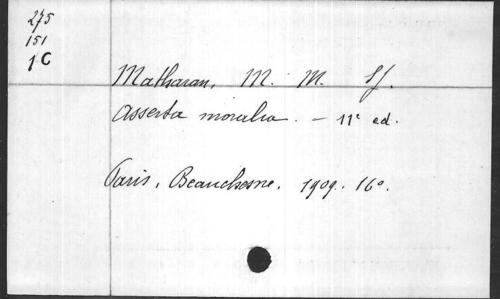 275
151
1 C
Matharan, M. M. SJ.
Asserta moralia. - 11e ed.
Paris, Beauchesne. 1909. 16o.